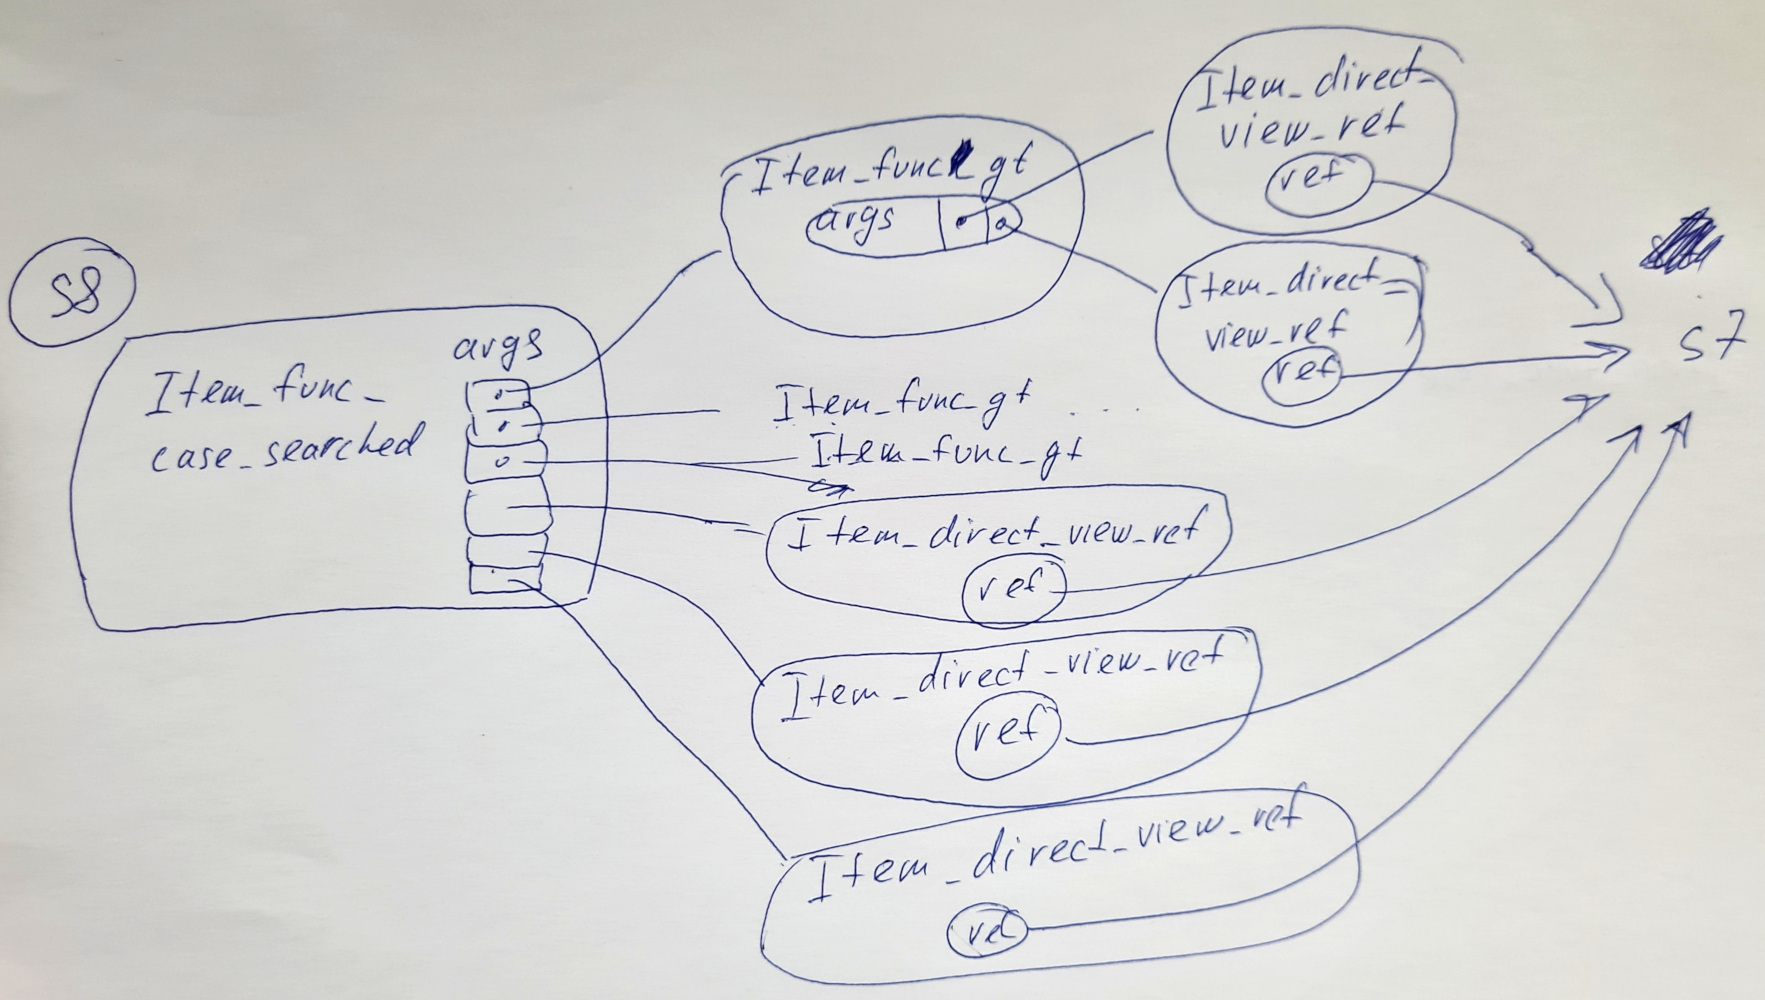 S8
args
Item_func_
case_searched
Item_func gt
args
Item_direct_
view_ref
ref
Item_direct_
view_ref
ref
s7
Item_func_gt ....
Item_func_gt
Item_direct_view_ref
ref
Item_direct_view_ref
ref
Item_direct_view_ref
ref